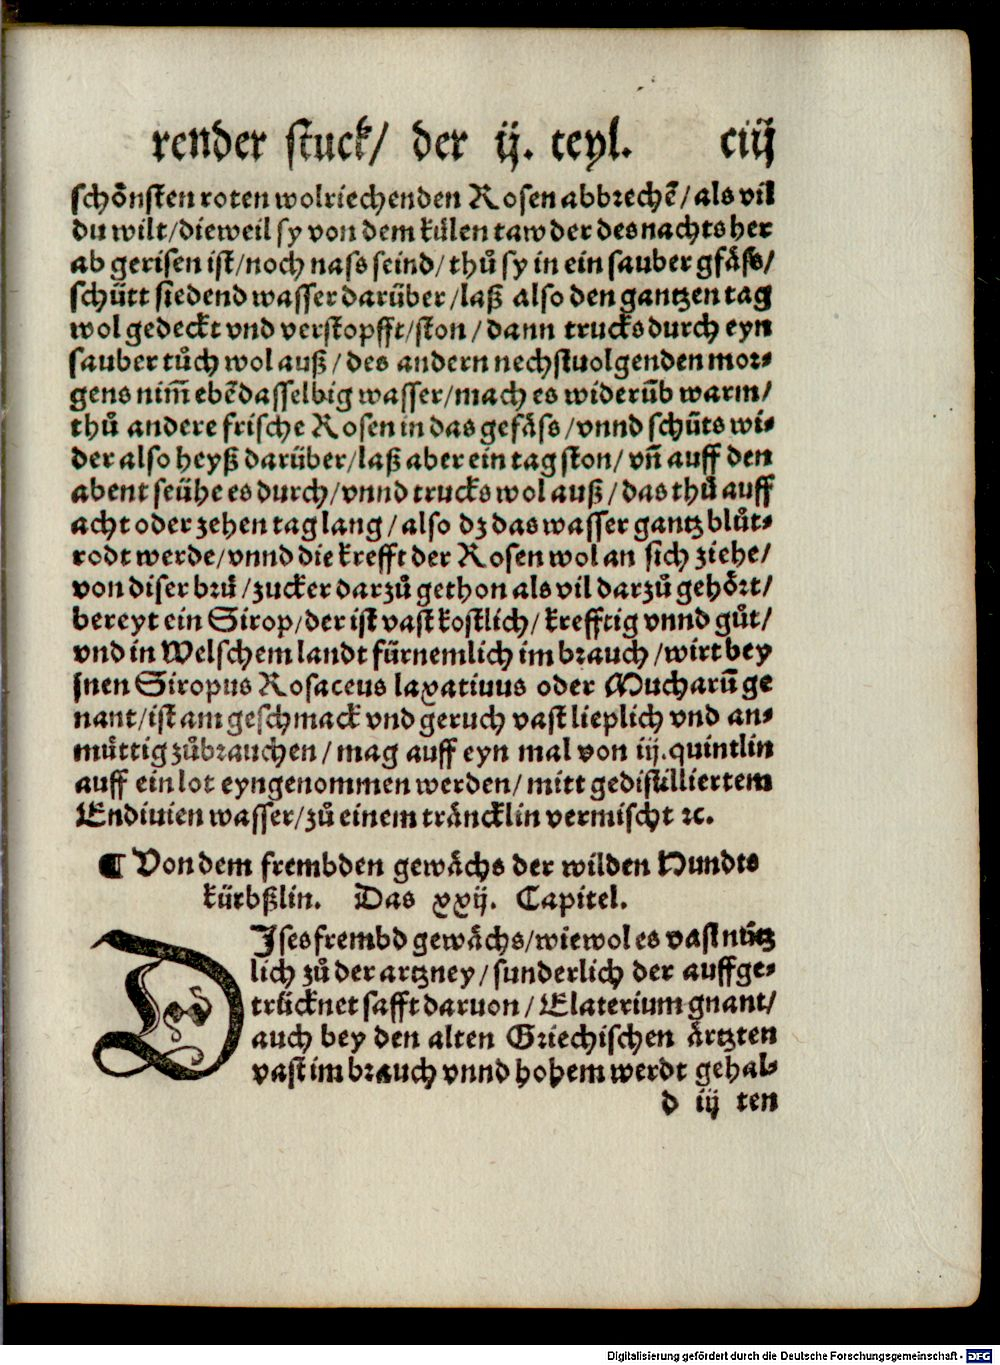 render stuck/ der ij. teyl. ciij
schönsten roten wolriechenden Rosen abbrechẽ/als vil
du wilt/dieweil sy von dem külen taw der des nachts her
ab gerisen ist/noch nass seind/thů sy in ein sauber gfäss/
schütt siedend wasser darüber/laß also den gantzen tag
wol gedeckt vnd verstopfft/ston/dann trucks durch eyn
sauber tůch wol auß/des andern nechstuolgenden mor⸗
gens nim̃ ebẽdasselbig wasser/mach es widerũb warm/
thů andere frische Rosen in das gefäss/vnnd schüts wi⸗
der also heyß darüber/laß aber ein tag ston/vñ auff den
abent seühe es durch/vnnd trucks wol auß/das thů auff
acht oder zehen tag lang/also dz das wasser gantz blůt⸗
rodt werde/vnnd die krefft der Rosen wol an sich ziehe/
von diser brü/zucker darzů gethon als vil darzů gehört/
bereyt ein Sirop/der ist vast kostlich/krefftig vnnd gůt/
vnd in Welschem landt fürnemlich im brauch/wirt bey
jnen Siropus Rosaceus laxatiuus oder Mucharũ ge
nant/ist am geschmack vnd geruch vast lieplich vnd an⸗
můttig zůbrauchen/mag auff eyn mal von iij.quintlin
auff ein lot eyngenommen werden/mitt gedistilliertem
Endiuien wasser/zů einem träncklin vermischt ꝛc.
¶ Von dem frembden gewächs der wilden Hundts
kürbßlin. Das xxij. Capitel.
DIses frembd gewächs/wiewol es vast nütz
lich zů der artzney/sunderlich der auffge⸗
trücknet safft daruon/Elaterium gnant/
auch bey den alten Griechischen ärtzten
vast im brauch vnnd hohem werdt gehal⸗
d iij ten
Digitalisierung gefördert durch die Deutsche Forschungsgemeinschaft - DFG